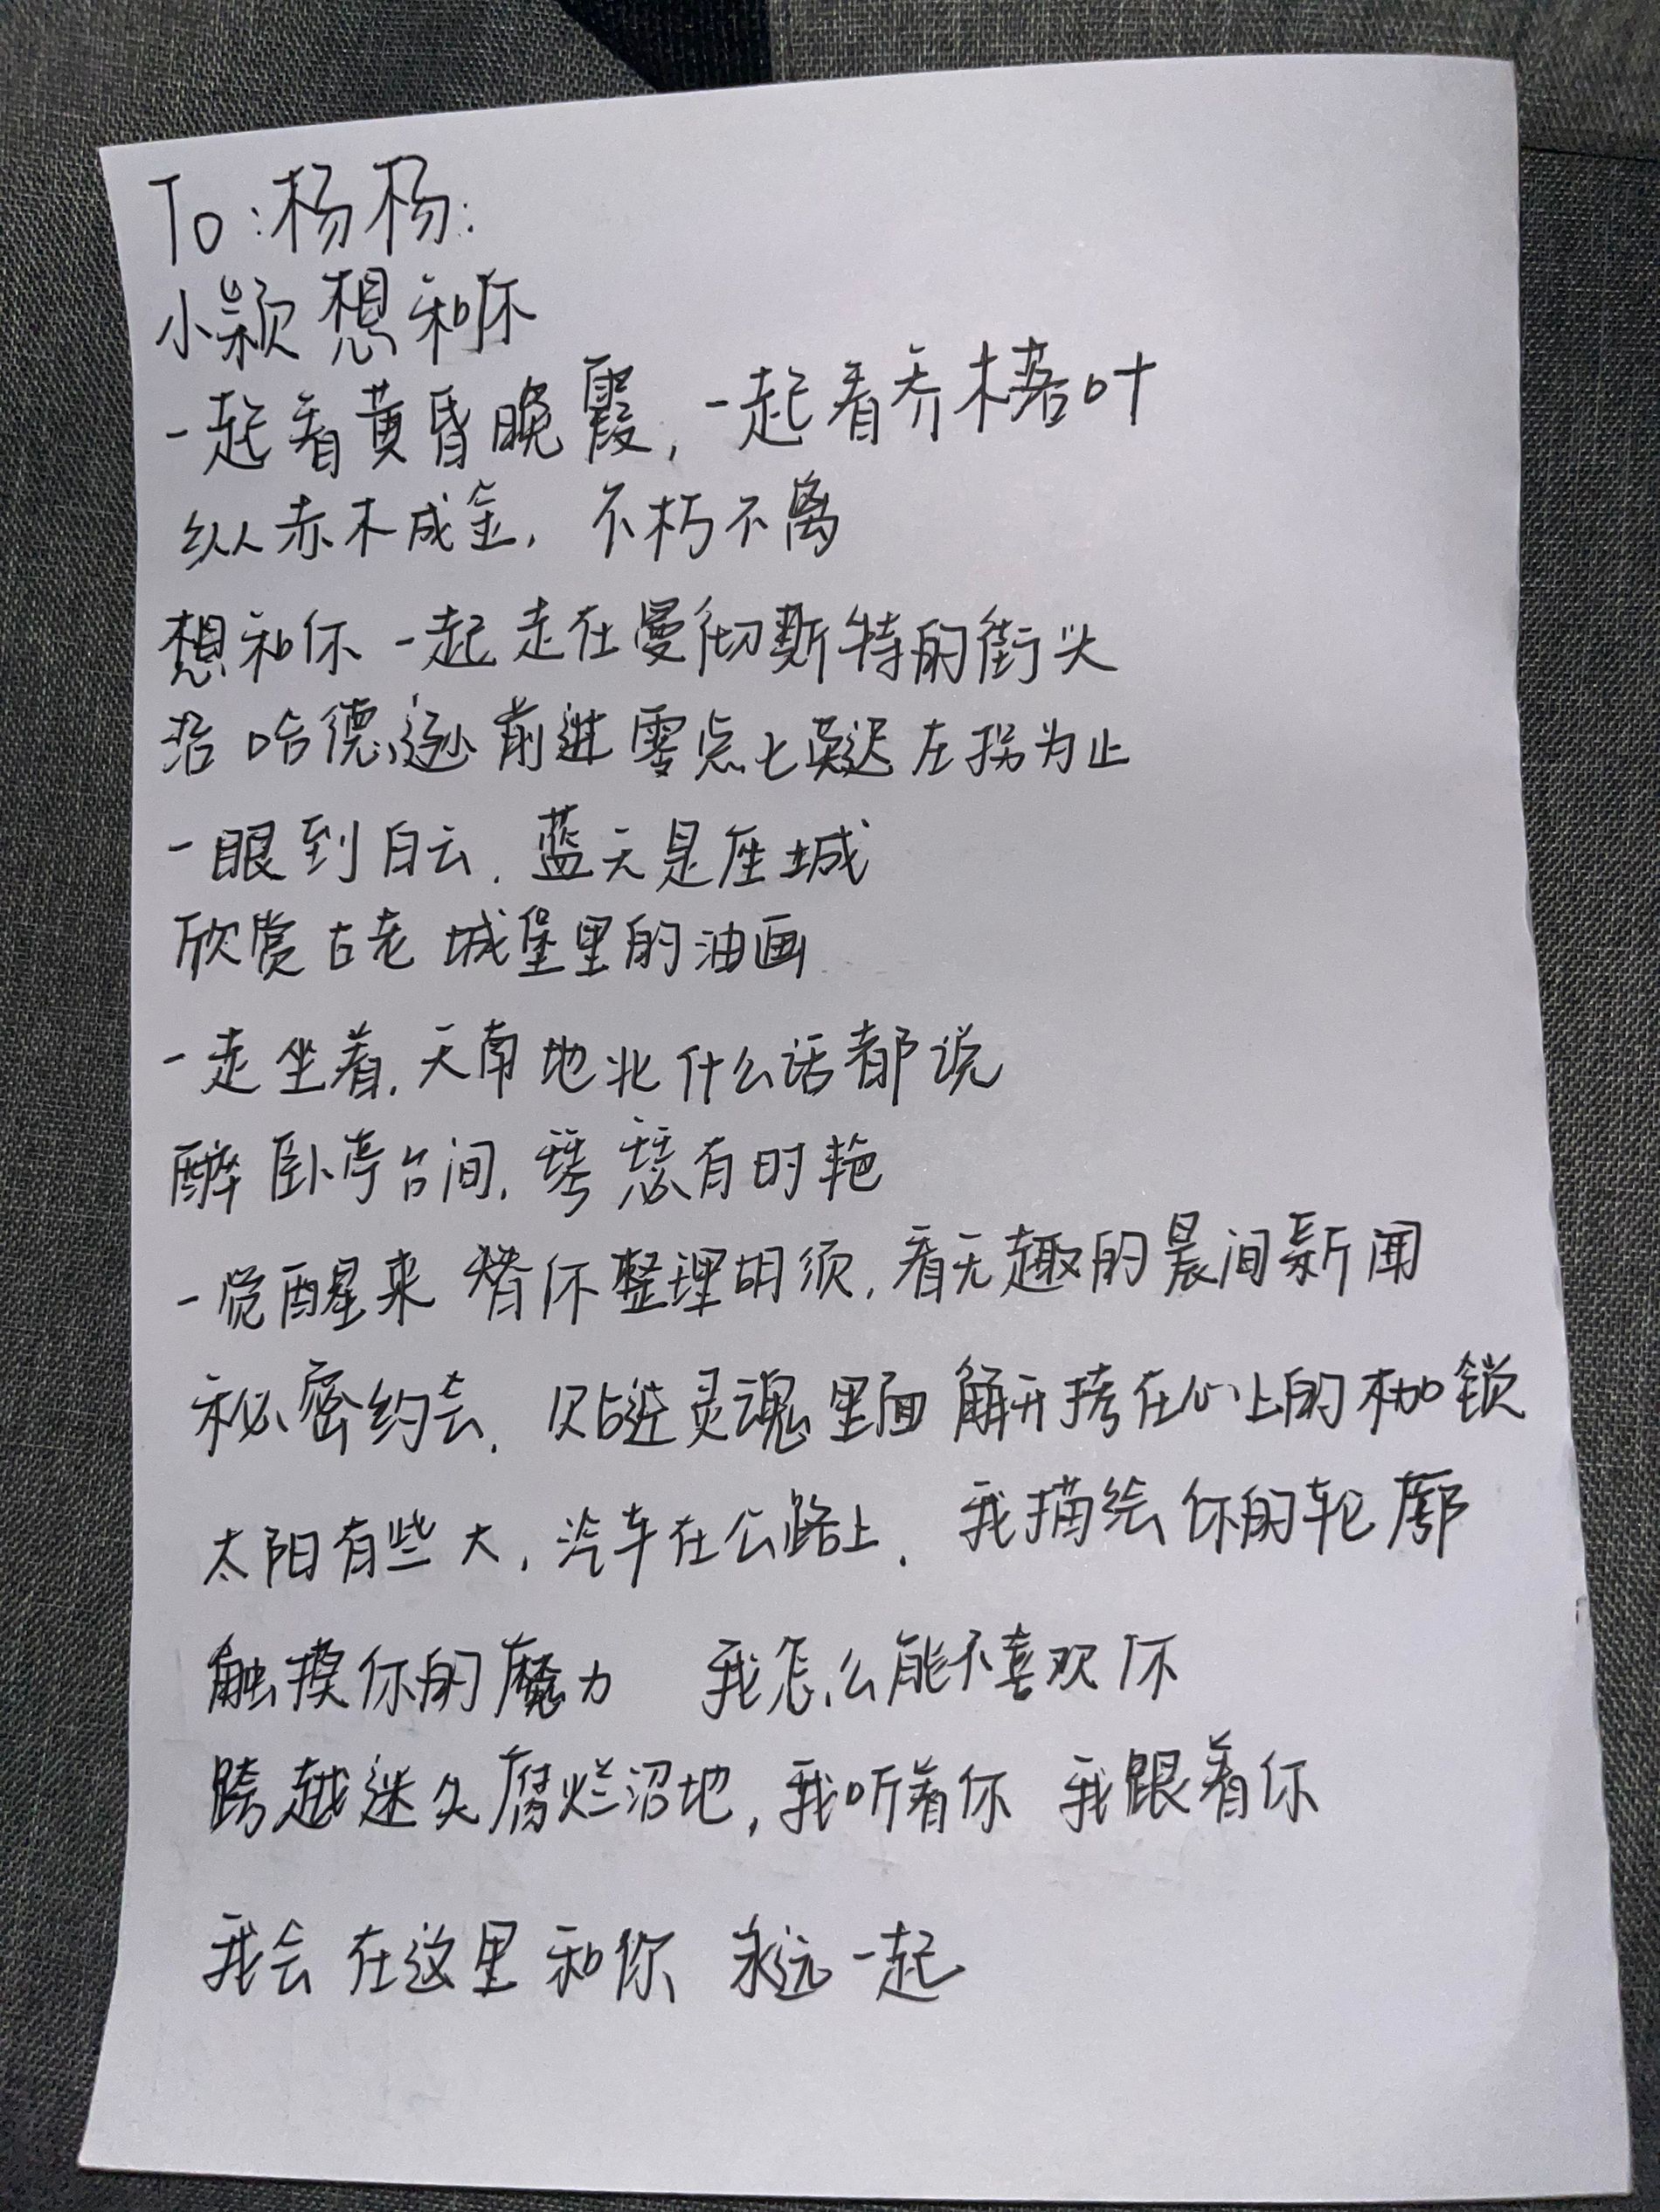 To:杨杨:
小颖想和你
一起看黄昏晚霞,一起看乔木落叶
纵赤木成金,不朽不离
想和你一起走在曼彻斯特的街头
沿哈德逊前进零点七英迟左拐为止
一眼到白云,蓝天是座城
欣赏古老城堡里的油画
一走坐着,天南地北什么话都说
醉卧亭台间,琴瑟有时艳
一觉醒来 替你整理胡须,看无趣的晨间新闻
秘密约会,贴进灵魂里面 解开拷在心上的枷锁
太阳有些大,汽车在公路上,我描绘你的轮廓
触摸你的魔力 我怎么能不喜欢你
跨越迷久腐烂沼地,我听着你 我跟着你
我会在这里和你 永远一起